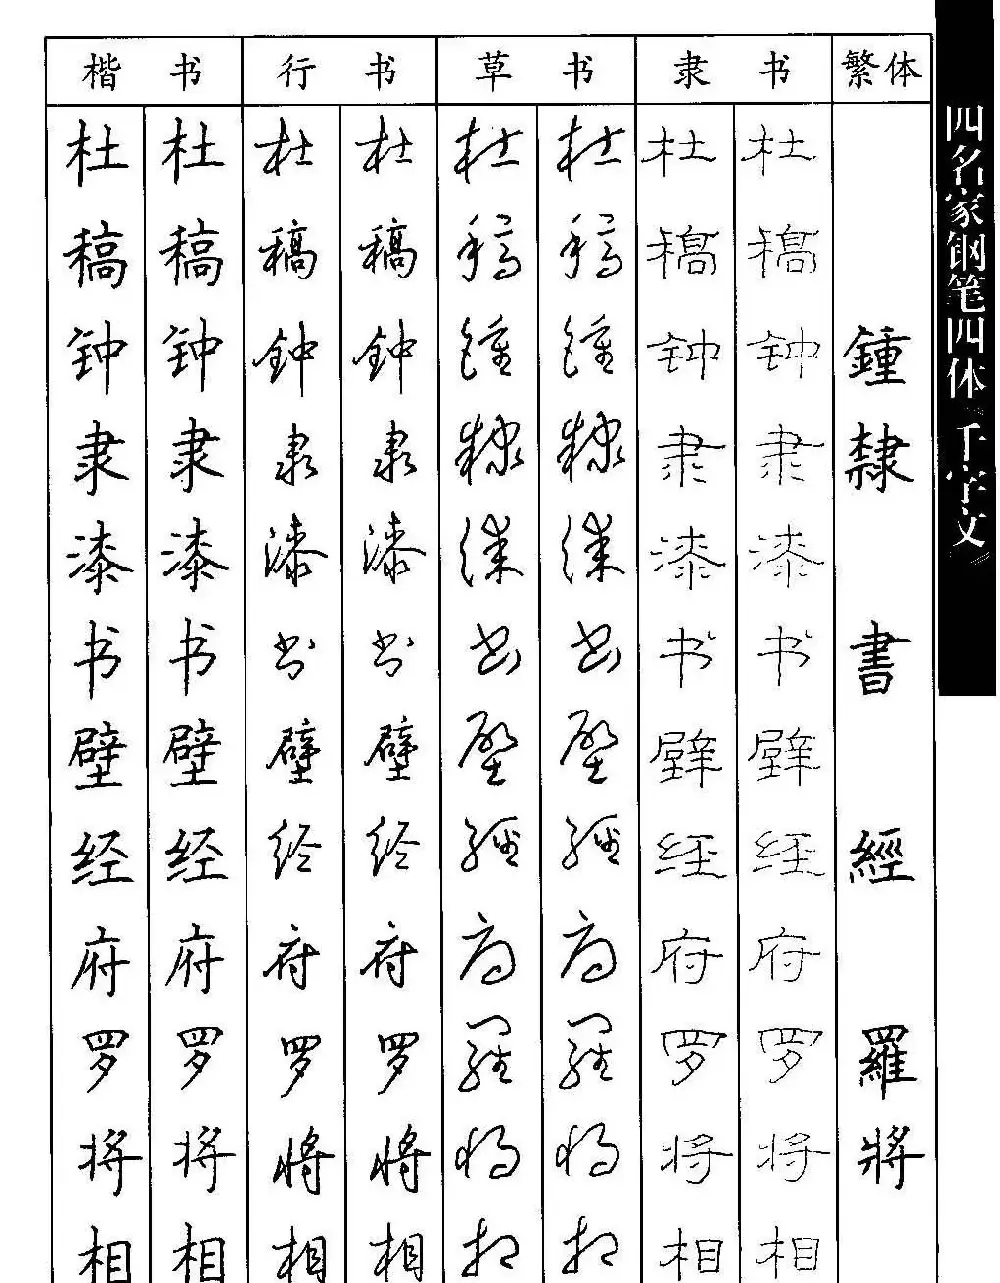 楷书 行书 草书 隶书 繁体
杜 杜 杜 杜 杜 杜 杜 杜
稿 稿 稿 稿 稿 稿 稿 稿
钟 钟 钟 钟 鍾 鍾 钟 钟 鍾
隶 隶 隶 隶 隸 隸 隶 隶 隸
漆 漆 漆 漆 漆 漆 漆 漆
书 书 书 书 书 书 书 书 書
壁 壁 壁 壁 壁 壁 壁 壁
经 经 经 经 經 經 经 经 經
府 府 府 府 府 府 府 府
罗 罗 罗 罗 羅 羅 罗 罗 羅
将 将 将 将 将 将 将 将 將
相 相 相 相 相 相 相 相
四名家钢笔四体《千字文》